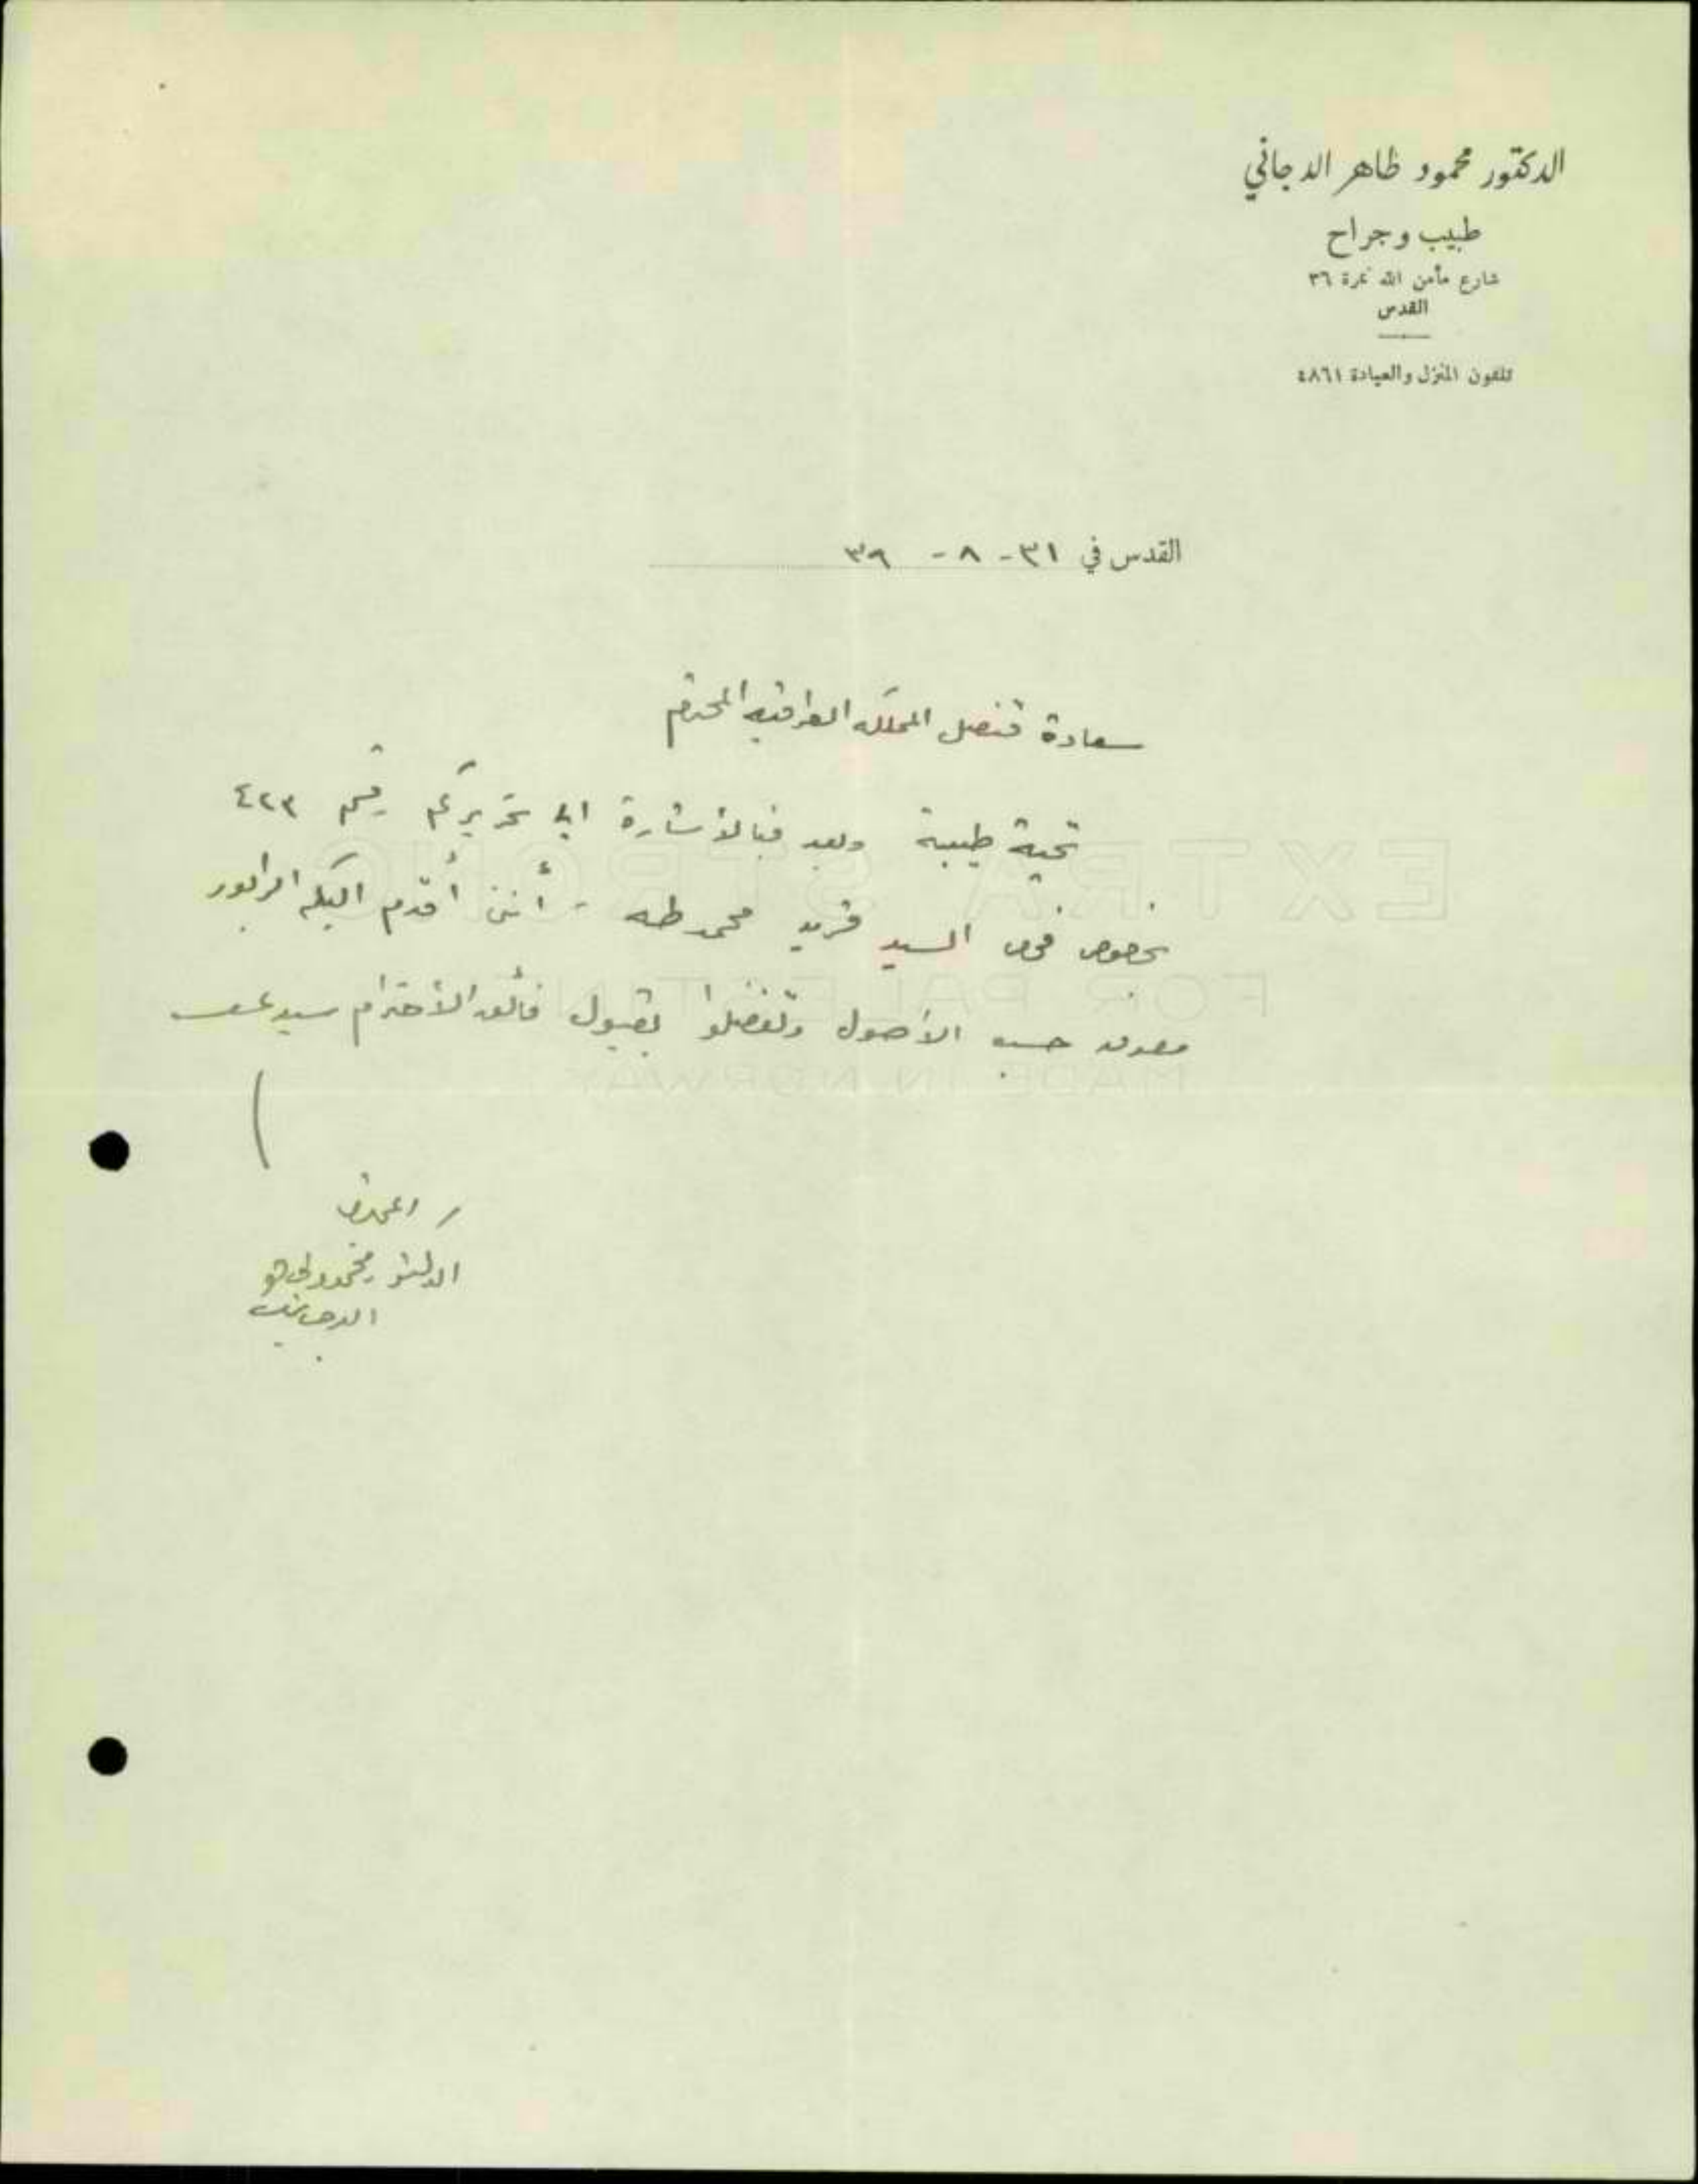 الدكتور محمود طاهر الدجاني
طبيب وجراح
شارع مأمن الله نمرة ٣٦
القدس
تلفون المنزل والعيادة ٤٨٦١
القدس في ٣١ - ٨ - ٣٩
سعادة قنصل المملكه العراقيه المحترم
تحية طيبة وبعد فبالأشارة الى تحريركم رقم ٤٢٣
بخصوص فحص السيد فريد محمد طه - أنني أقدم اليكم الرابور
مصدق حسب الأصول وتفضلوا بقبول فائق الأحترام سيدي
المخلص
الدكتور محمود طاهر
الدجاني
EXTRA STRONG
FOR PALESTINE
MADE IN NORWAY